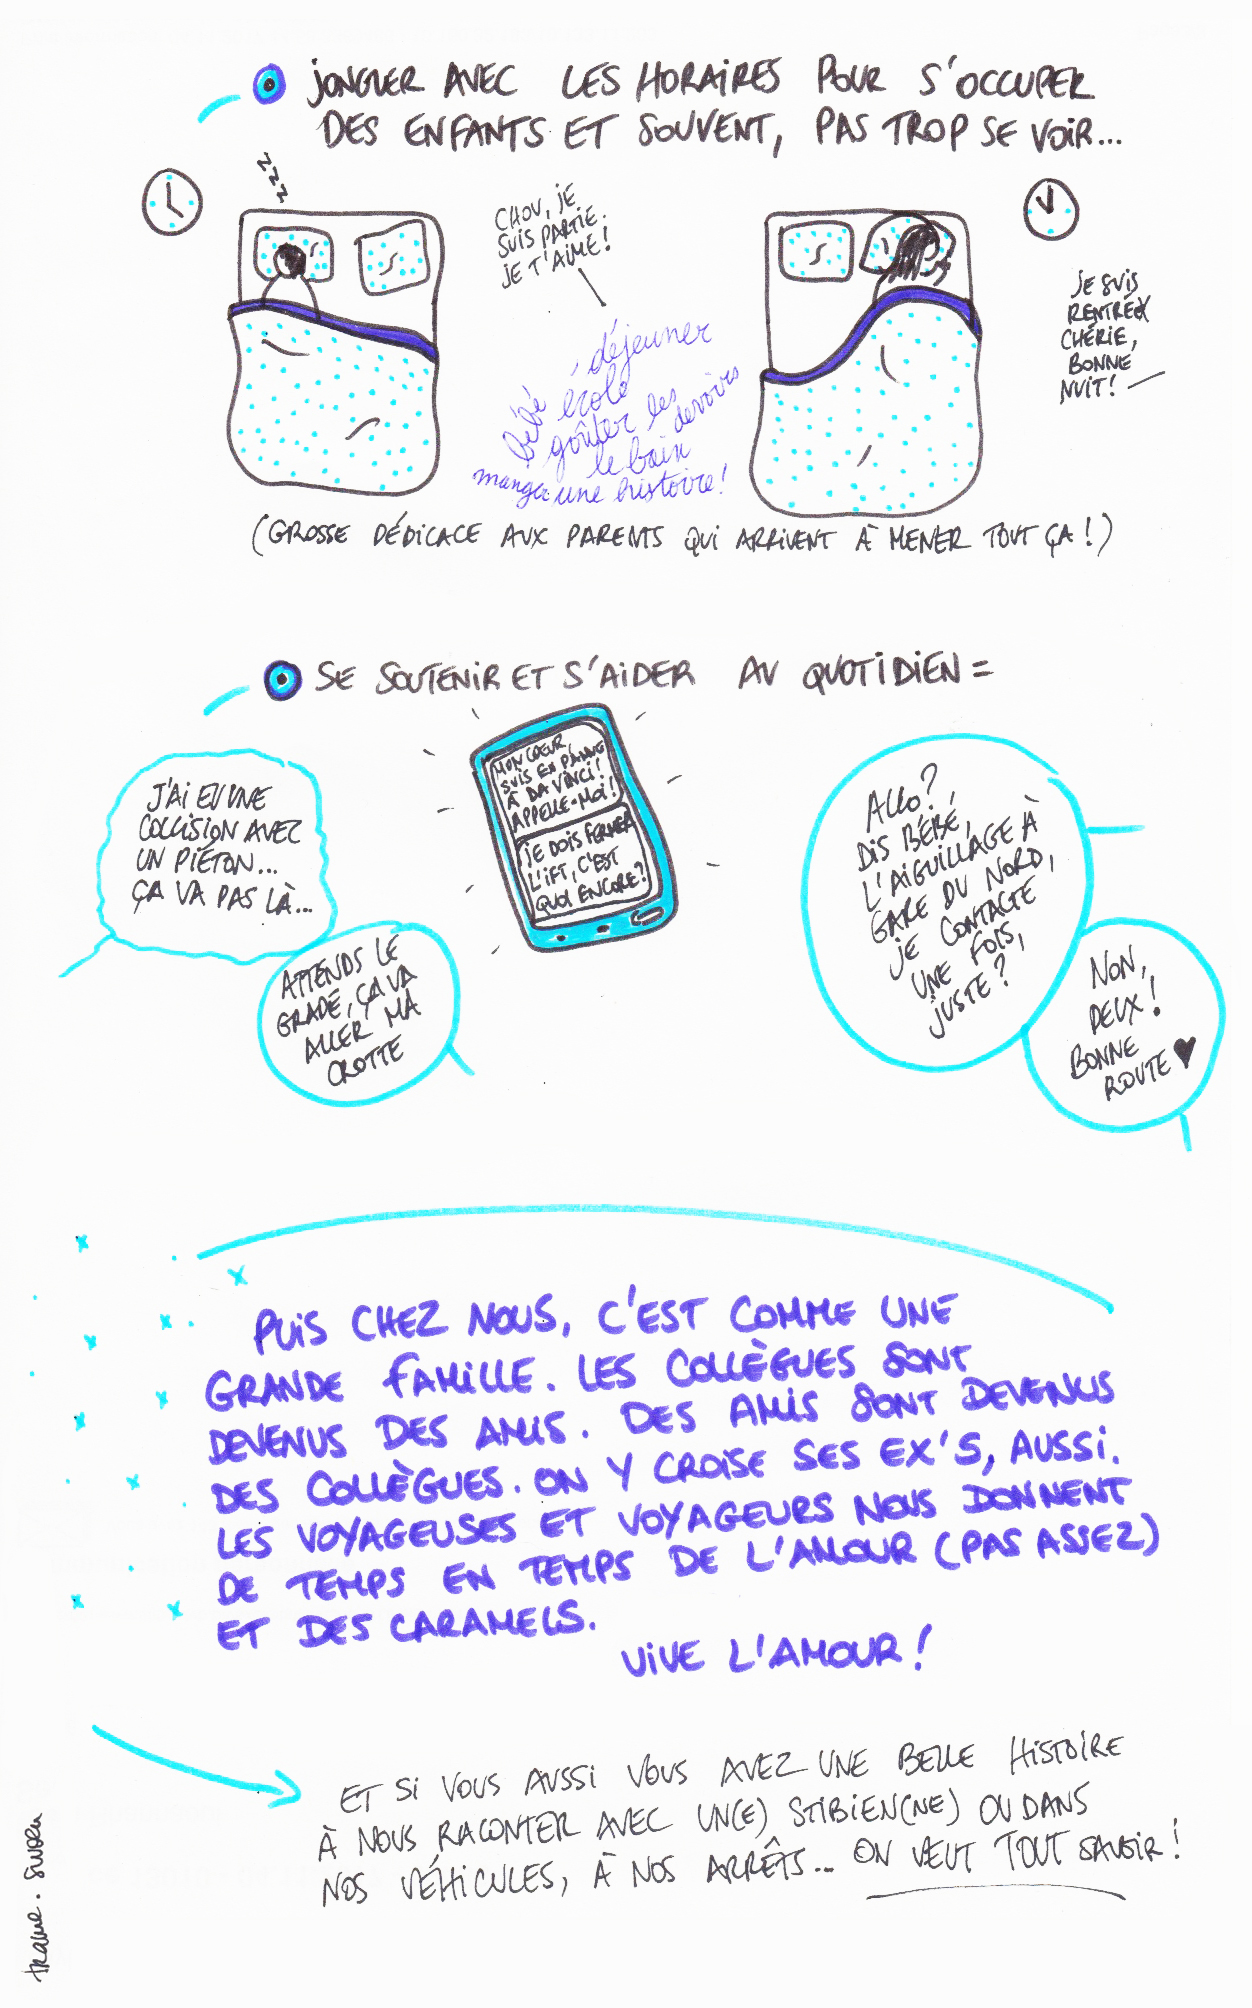 JONGLER AVEC LES HORAIRES POUR S'OCCUPER
DES ENFANTS ET SOUVENT, PAS TROP SE VOIR...
ZZZ
CHOU, JE
SUIS PARTIE.
JE T'AIME!
JE SUIS
RENTRÉ
CHÉRIE,
BONNE
NUIT!
déjeuner
bébé école
goûter les devoirs
le bain
manger une histoire!
(GROSSE DÉDICACE AUX PARENTS QUI ARRIVENT À MENER TOUT ÇA!)
SE SOUTENIR ET S'AIDER AU QUOTIDIEN =
J'AI EU UNE
COLLISION AVEC
UN PIÉTON...
ÇA VA PAS LÀ...
ATTENDS LE
GRADÉ, ÇA VA
ALLER MA
CROTTE
MON COEUR
SUIS EN PANNE
À DA VINCI!
APPELLE-MOI!
JE DOIS FERMER
L'IFT, C'EST
QUOI ENCORE?
ALLO?,
DIS BÉBÉ,
L'AIGUILLAGE À
GARE DU NORD,
JE CONTACTE
UNE FOIS,
JUSTE?
NON,
DEUX!
BONNE
ROUTE ♥
PUIS CHEZ NOUS, C'EST COMME UNE
GRANDE FAMILLE. LES COLLÈGUES SONT
DEVENUS DES AMIS. DES AMIS SONT DEVENUS
DES COLLÈGUES. ON Y CROISE SES EX'S, AUSSI.
LES VOYAGEUSES ET VOYAGEURS NOUS DONNENT
DE TEMPS EN TEMPS DE L'AMOUR (PAS ASSEZ)
ET DES CARAMELS.
VIVE L'AMOUR!
ET SI VOUS AUSSI VOUS AVEZ UNE BELLE HISTOIRE
À NOUS RACONTER AVEC UN(E) STIBIEN(NE) OU DANS
NOS VÉHICULES, À NOS ARRÊTS... ON VEUT TOUT SAVOIR!